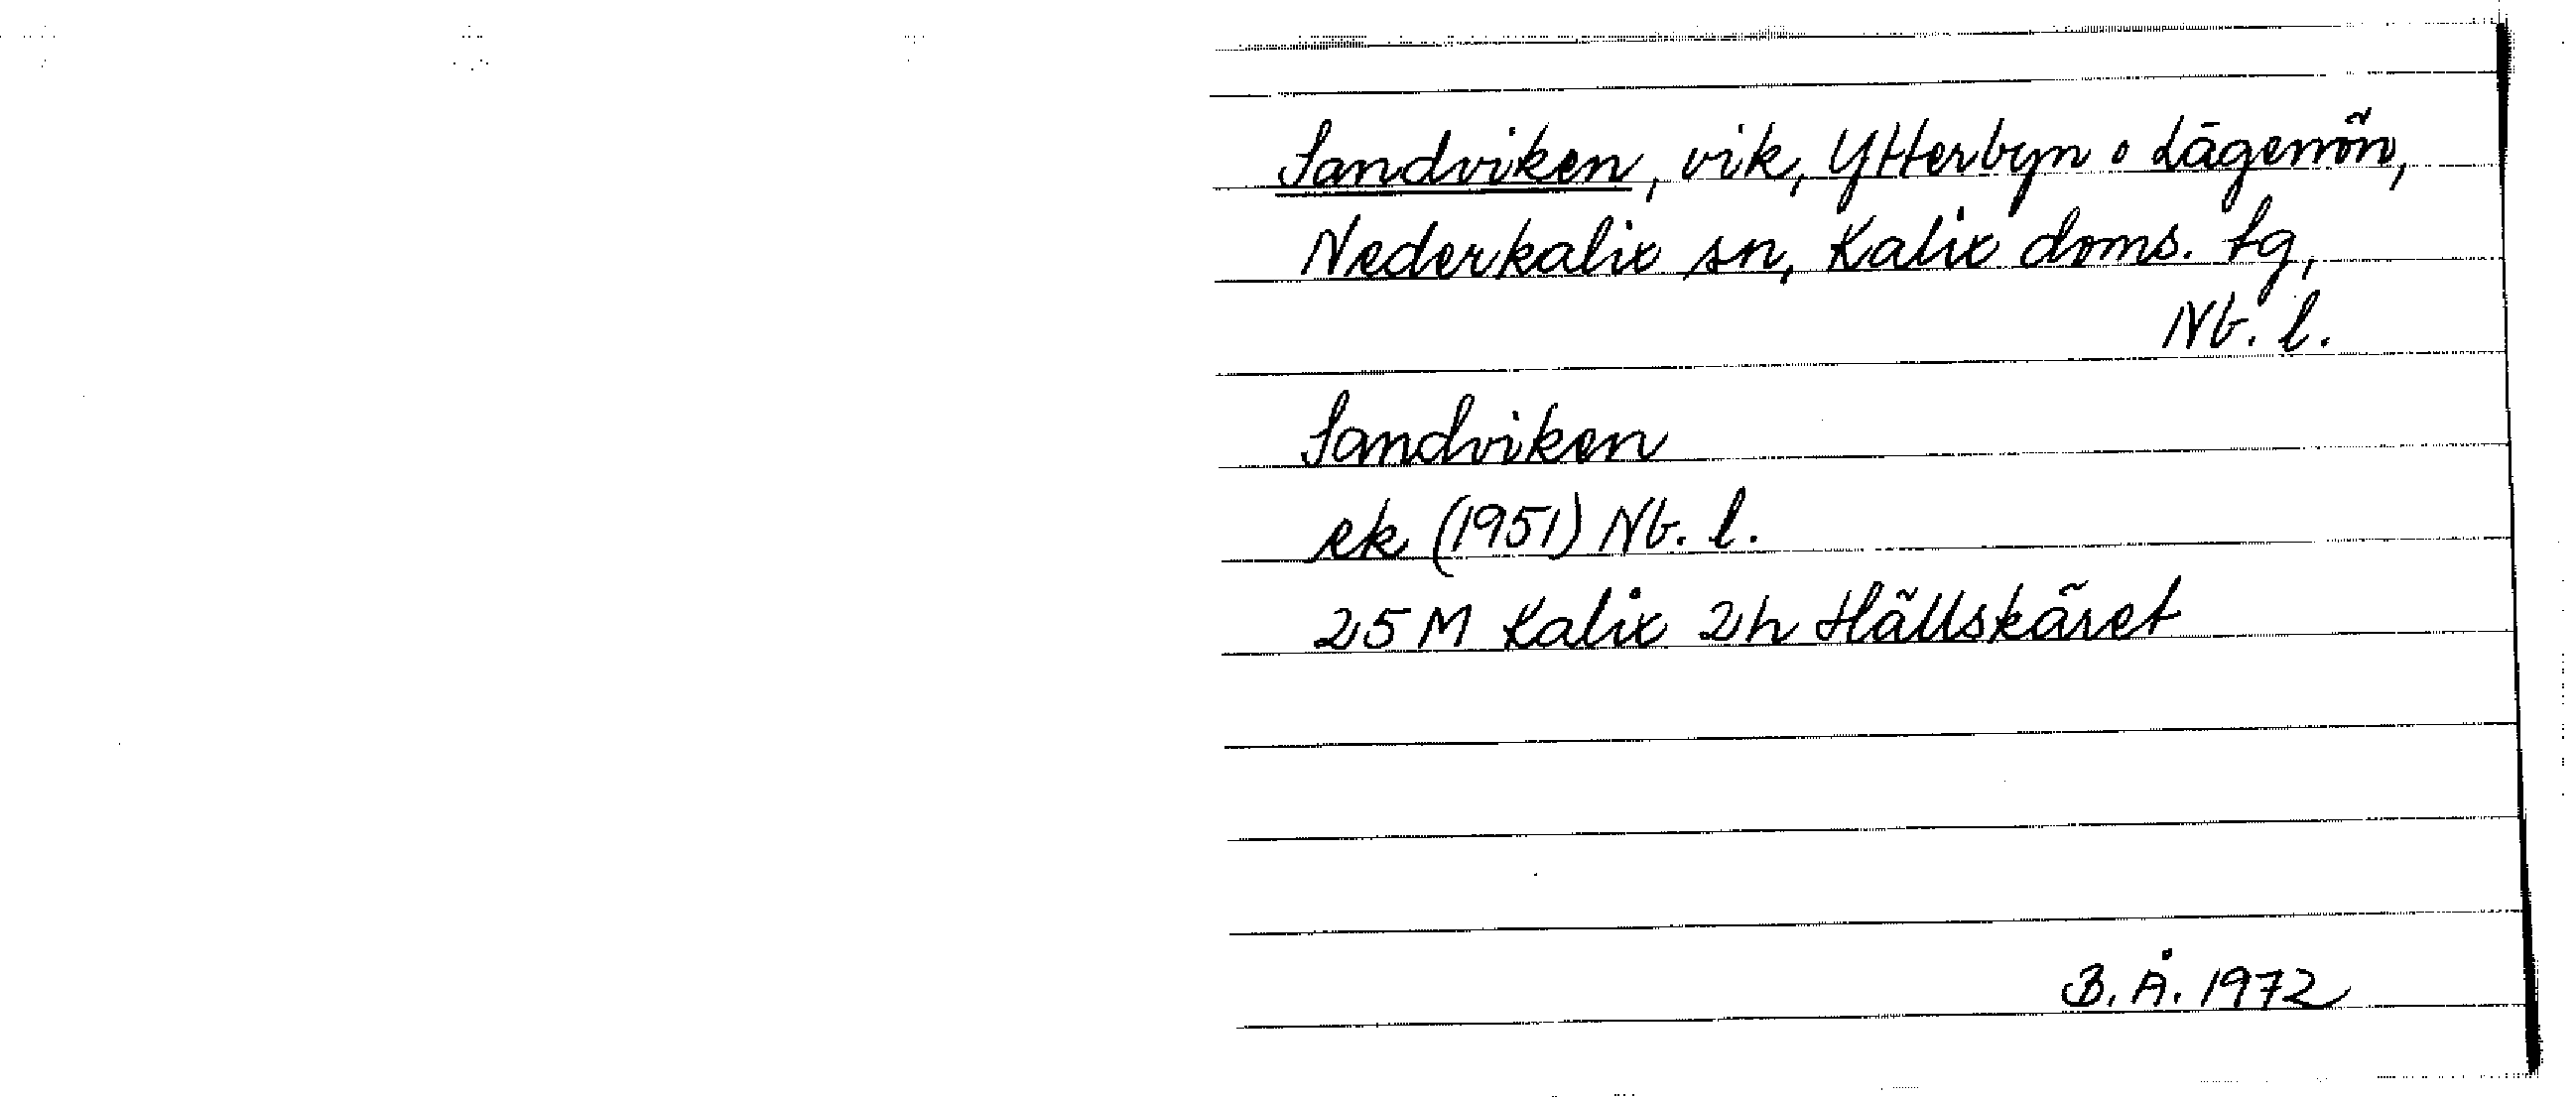 Sandviken, vik, Ytterbyn o Lägenön,
Nederkalix sn, Kalix doms. tg,
Nb. l.
Sandviken
ek (1951) Nb. l.
25 M Kalix 2h Hällskäret
B. Å. 1972